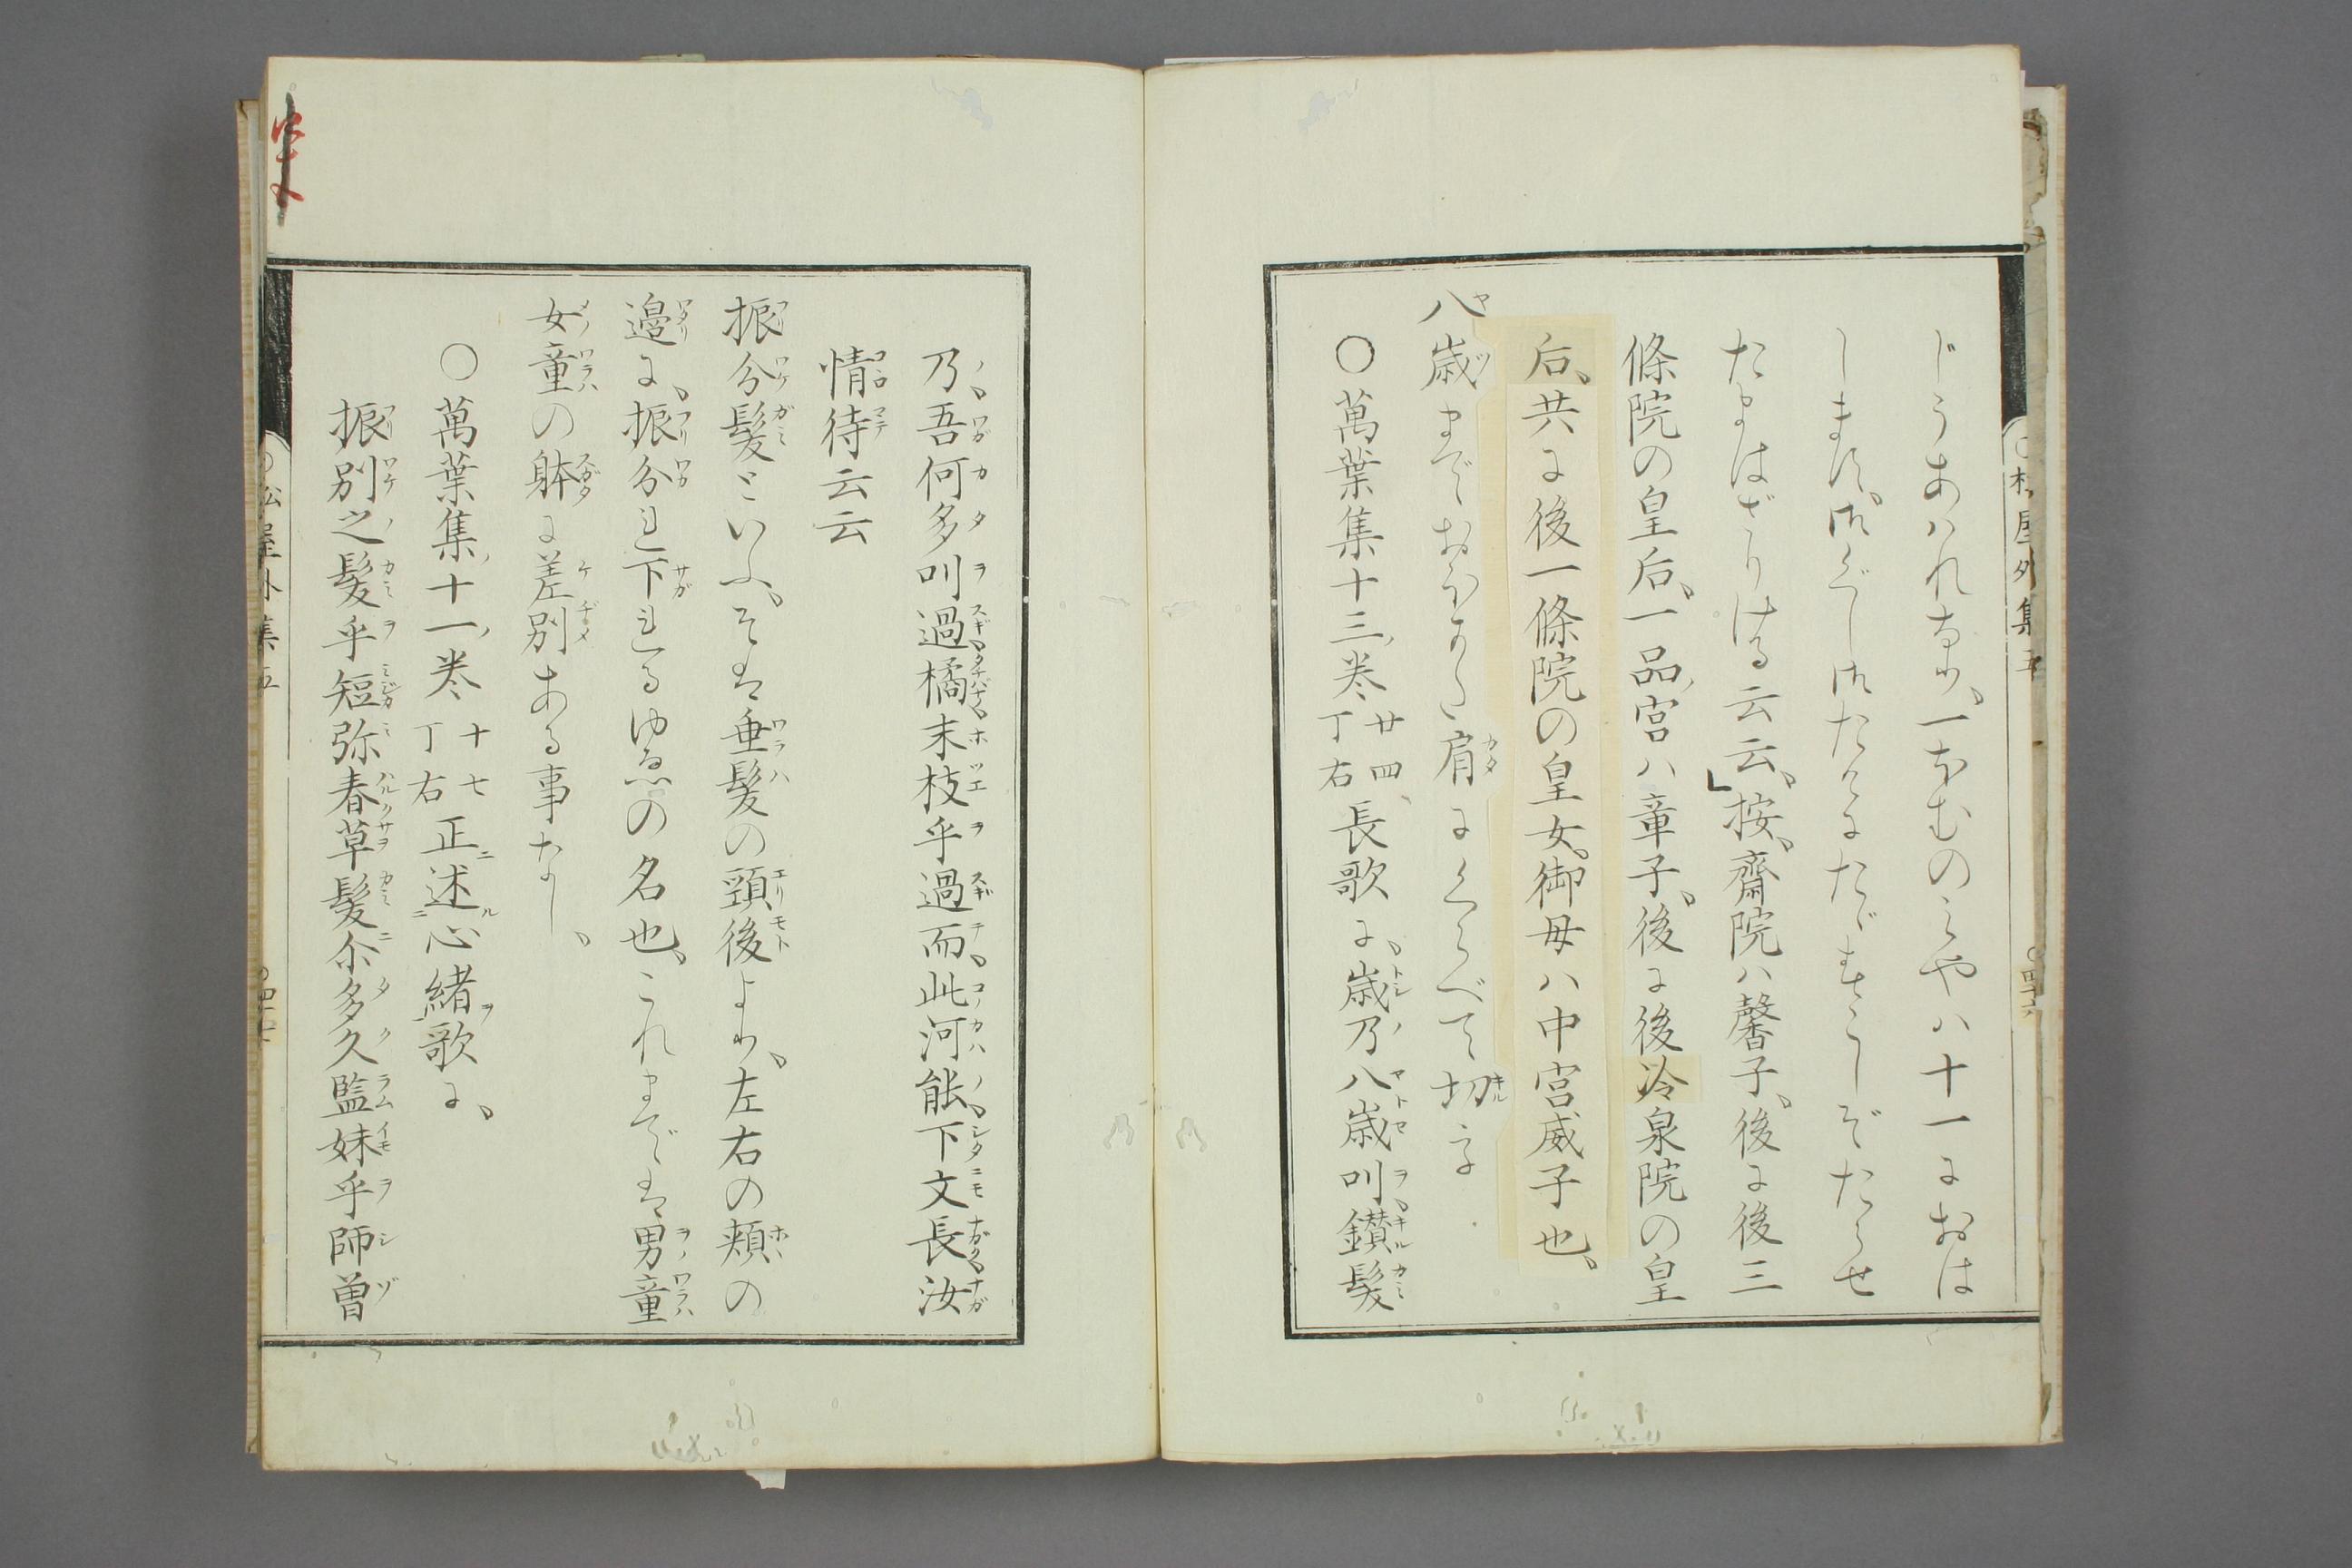 じうあハれなり、一ほむのミやハ十一におは
します。御ぐし御たけにたがまこしぞたらせ
たまはざりける云云、」按、齋院ハ馨子、後に後三
條院の皇后、一品ノ宮ハ章子、後に後冷泉院の皇
后、共に後一條院の皇女、御母ハ中宮威子也、
八歳までおひたち肩にくらべて切る
〇萬葉集十三ノ巻廿四丁右長歌に、歳乃八歳叫鑚髪
乃、吾何多叫過橘末枝乎過而、此河能下文長汝
情待云云
振分髪といふ、そは垂髪の頸後より、左右の頬の
邊に、振分れ下れるゆゑの名也、これまでは男童
女童の躰に差別ある事なし、
〇萬葉集ノ十一ノ巻十七丁右正述心緒歌に、
振別之髪乎短弥春草髪尓多久監妹乎師曽
松屋外集五
松屋外集五